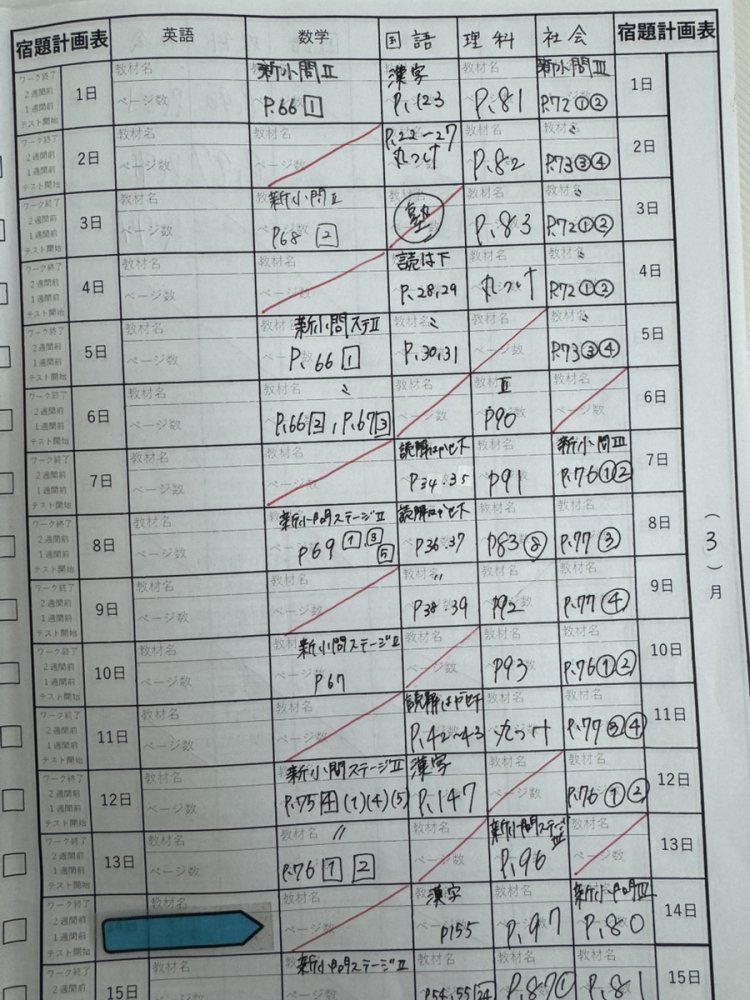 宿題計画表 英語 数学 国語 理科 社会 宿題計画表
ワーク終了 2週間前 1週間前 テスト開始 1日 教材名 ページ数 新小問Ⅱ P.66 1 漢字 P.123 P.81 新小問Ⅲ P.72①② 1日
ワーク終了 2週間前 1週間前 テスト開始 2日 教材名 ページ数 教材名 ページ数 P.22~27 丸つけ P.82 〃 P.73③④ 2日
ワーク終了 2週間前 1週間前 テスト開始 3日 教材名 ページ数 新小問Ⅱ P68 2 塾 P.83 〃 P.72①② 3日
ワーク終了 2週間前 1週間前 テスト開始 4日 教材名 ページ数 教材名 ページ数 読は下 P.28,29 丸つけ 〃 P.72①② 4日
ワーク終了 2週間前 1週間前 テスト開始 5日 教材名 ページ数 新小問ステⅡ P.66 1 〃 P.30.31 教材名 ページ数 〃 P.73③④ 5日
ワーク終了 2週間前 1週間前 テスト開始 6日 教材名 ページ数 〃 P.66 2, P.67 3 教材名 ページ数 Ⅱ P90 教材名 ページ数 6日
ワーク終了 2週間前 1週間前 テスト開始 7日 教材名 ページ数 教材名 ページ数 読解はかせ下 P34.35 P91 新小問Ⅲ P.76①② 7日
ワーク終了 2週間前 1週間前 テスト開始 8日 教材名 ページ数 新小問ステージⅡ P69 1.3 5 読解はかせ下 P36.37 P83⑧ P.77③ 8日
ワーク終了 2週間前 1週間前 テスト開始 9日 教材名 ページ数 教材名 ページ数 〃 P38.39 P92 P.77④ 9日
ワーク終了 2週間前 1週間前 テスト開始 10日 教材名 ページ数 新小問ステージⅡ P67 教材名 ページ数 P93 P.76①② 10日
ワーク終了 2週間前 1週間前 テスト開始 11日 教材名 ページ数 教材名 ページ数 読解はかせ下 P.42~43 丸つけ P.77③④ 11日
ワーク終了 2週間前 1週間前 テスト開始 12日 教材名 ページ数 新小問ステージⅡ P.75 4 (1)(4)(5) 漢字 P.147 教材名 ページ数 P.76①② 12日
ワーク終了 2週間前 1週間前 テスト開始 13日 教材名 ページ数 〃 P.76 1 2 教材名 ページ数 新小問ステージⅢ P.96 教材名 ページ数 13日
ワーク終了 2週間前 1週間前 テスト開始 教材名 教材名 ページ数 漢字 P155 P.97 新小問Ⅲ P.80 14日
ワーク終了 2週間前 1週間前 テスト開始 15日 教材名 ページ数 新小問ステージⅡ P54.55 24 P.87① P.81 15日
(3)月